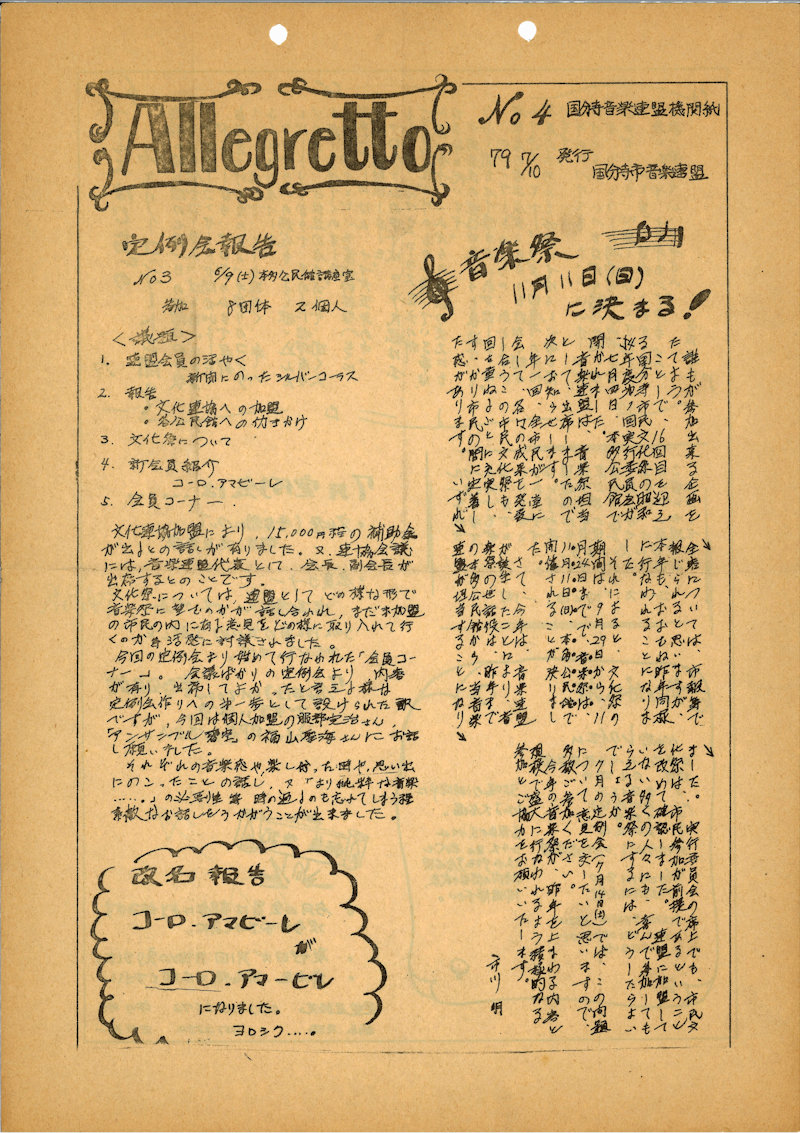 Allegretto
No 4 国分寺音楽連盟機関紙
79 7/10 発行 国分寺市音楽連盟
定例会報告
No3 6/9(土) 本多公民館講座室
参加 8団体 2個人
<議題>
1. 連盟会員の活やく
新聞にのったシルバーコーラス
2. 報告
・文化連協への加盟
・各公民館への働きかけ
3. 文化祭について
4. 新会員紹介
コーロ.アマビーレ
5. 会員コーナー
文化連協加盟により、15,000円程の補助金
が出るとの話しが有りました。又、連協会議
には、音楽連盟代表として、会長、副会長が
出席するとのことです。
文化祭については、連盟として どの様な形で
音楽祭に望むのかが話し合われ、まだ未加盟
の市民の内にある意見をどの様に取り入れて行
くのかを活発に討議されました。
今回の定例会より始めて行なわれた「会員コー
ナー」。会議ばかりの定例会より、内容
が有り、出席してよかったと言える様な
定例会作りへの第一歩として設けられた訳
ですが、今回は個人加盟の服部定治さん、
「アンサンブル
の福山
海さんにお話
し願いました。
それぞれの音楽感や、楽しかった曲や、思い出
にのこったことの話し、又「より純粋な音楽
……。」の
時の過るのも忘れてしまう程
素敵なお話しをうかがうことが出来ました。
改名報告
コーロ.アマビーレ
が
コーロ.アマービレ
になりました。
ヨロシク.....
音楽祭
11月11日(日)
に決まる!
誰もが参加出来る企画を
たてよう。
ことしで、16回目を迎え
る国分寺市民文化祭の昭和
54年度第1回実行委員会が
七月四日、本多公民館で
開かれました。
音楽連盟は、音楽祭担当
として、出席しましたので
次にお知らせします。
年一回、全市民が一堂に
会して、各々の成果を発表
し合うこの市民文化祭も、
回を重ねるごとに充実し、
すっかり市民の間に定着し
た感があります。いずれ
全容については、市報等で
報じられると思いますが、
本年も、おおむね昨年同様
に行なわれることになりま
した。
それによると、文化祭の
期間は、9月29日から11
月24日までで、音楽祭は、
11月11日(日)、本多公民館で
開催されることが決りまし
た。
さて、今年は、音楽連盟
が誕生したことにより、音
楽祭の世話役は、昨年まで
の本多公民館から、当音楽
連盟が担当することになり
ました。実行委員会の席上でも、市民文
化祭は、市民参加が前提であるということ
を改めて確認しました。連盟に加盟して
いない多くの人々にも、喜んで参加しても
らえる音楽祭にするには、どうしたらよい
でしょうか。
7月の定例会(7月14日(土))では、この問題
について意見を交したいと思いますので、
多数ご参加ください。
今年の音楽祭が、昨年を上まわる内容と
規模で盛大に行なわれるよう積極的なる
参加とご協力をお願いいたします。
市川 明